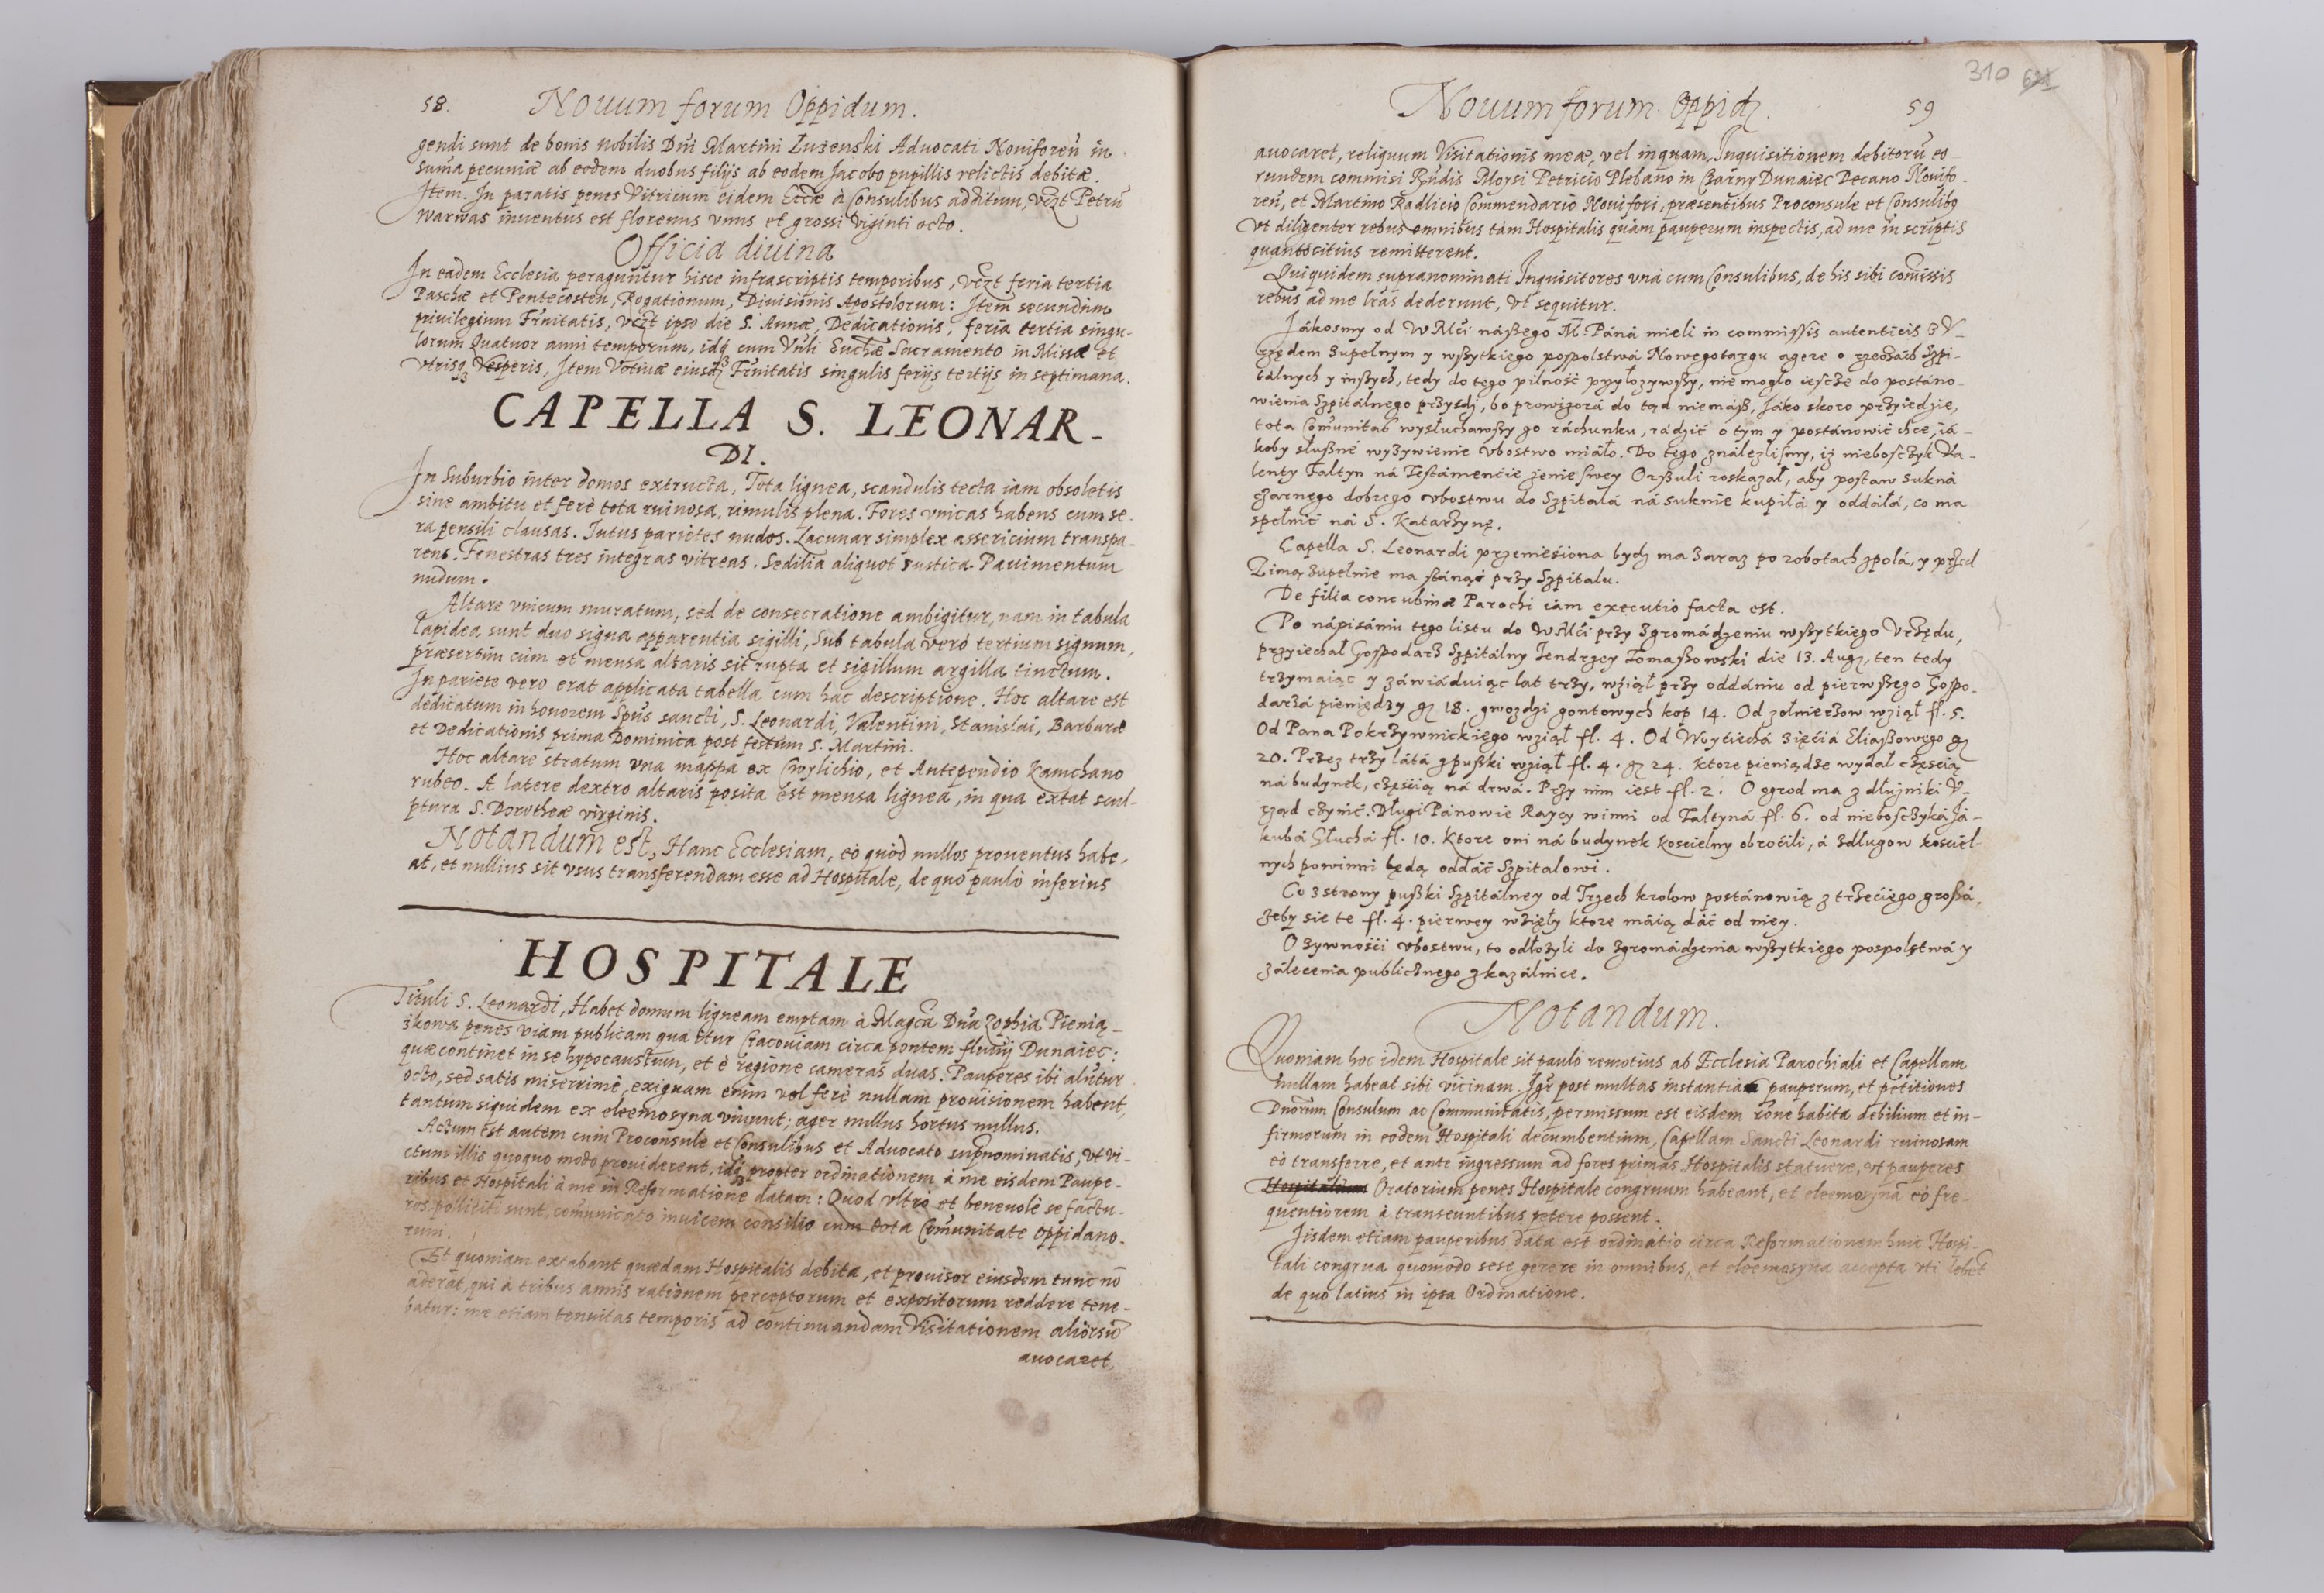 58. Nouum forum Oppidum.
gendi sunt de bonis nobilis Dñi Martini Łużenski Aduocati Nouiforeñ in
suma pecuniæ ab eodem duobus filijs ab eodem Jacobo pupillis relictis debitæ.
Item. In paratis penes Vitricum eidem Eccæ à Consulibus additum, vczt Petrũ
Warwas inuentus est florenus vnus et grossi viginti octo.
Officia diuina
In eadem Ecclesia peraguntur hisce infrascriptis temporibus, vczt feria tertia
Paschæ et Pentecosten, Rogationum, Diuisionis Apostolorum: Item secundum
priuilegium Trinitatis, vczt ipso die S. Annæ, Dedicationis, feria tertia singu-
lorum Quatuor anni temporum, idq3 cum Vñli Euchæ Sacramento in Missa et
vtrisq3 Vesperis, Item Votiuæ eiusdē Trinitatis singulis ferijs tertijs in septimana.
CAPELLA S. LEONAR-
DI.
In suburbio inter domos extructa, Tota lignea, scandulis tecta iam obsoletis
sine ambitu et ferè tota ruinosa, rimulis plena. Fores vnicas habens cum se-
ra pensili clausas. Intus parietes nudos. Lacunar simplex assericium transpa-
rens. Fenestras tres integras vitreas. Sedilia aliquot rustica. Pauimentum
nudum.
Altare vnicum muratum, sed de consecratione ambigitur, nam in tabula
lapidea sunt duo signa apparentia sigilli, sub tabula verò tertium signum,
præsertim cùm et mensa altaris sit rupta et sigillum argilla tinctum.
In pariete vero erat applicata tabella cum hac descriptione. Hoc altare est
dedicatum in honorem Spũs sancti, S. Leonardi, Valentini, Stanislai, Barbaræ
et Dedicationis prima Dominica post festum S. Martini.
Hoc altare stratum vna mappa ex Cwylichio, et Antependio Kamchano
rubeo. A latere dextro altaris posita est mensa lignea, in qua extat scul-
ptura S. Dorotheæ virginis.
Notandum est, Hanc Ecclesiam, eò quòd nullos prouentus habe-
at, et nullius sit vsus transferendam esse ad Hospitale, de quo paulò inferius
HOSPITALE
Tituli S. Leonardi, Habet domum ligneam emptam à Magca Dña Zophia Pienią-
żkowa penes viam publicam qua itur Cracouiam circa pontem fluuij Dunaiec:
quæ continet in se hypocaustum, et è regione cameras duas. Pauperes ibi alũtur
octo, sed satis miserrimè, exiguam enim vel ferè nullam prouisionem habent,
tantum siquidem ex eleemosyna viuunt; ager nullus hortus nullus.
Actum est autem cum Proconsule et Consulibus et Aduocato supnominatis, vt vi-
ctum illis quoquo modo prouiderent, idq3 propter ordinationem à me eisdem Paupe-
ribus et Hospitali à me in Reformatione datam: Quod vltrò et beneuolè se factu-
ros polliciti sunt, comunicato inuicem consilio cum tota Comunitate oppidano-
rum.
Et quoniam extabant quædam Hospitalis debita, et prouisor eiusdem tunc nõ
aderat, qui à tribus annis rationem perceptorum et expositorum reddere tene-
batur: me etiam tenuitas temporis ad continuandam Visitationem aliorsũ
auocaret
310
Nouum forum Oppid. 59
auocaret, reliquum Visitationis meæ, vel inquam, Inquisitionem debitorũ eo-
rundem commisi Rñdis Moysi Petricio Plebano in Czarny Dunaiec Decano Nouifo-
reñ, et Martino Radlicio Commendario Nouifori, præsentibus Proconsule et Consulibq
vt diligenter rebus omnibus tàm Hospitalis quàm pauperum inspectis, ad me in scriptis
quantocitius remitterent.
Qui quidem supranominati Inquisitores vnà cum Consulibus, de his sibi comissis
rebus ad me lras dederunt, vt sequitur.
Jákosmy od WMći nászego M. Páná mieli in commissis autenticis z V-
rzędem zupełnym y wszytkiego pospolstwá Nowegotargu agere o rzeczach Szpi-
talnych y inszych, tedy do tego pilność przyłozywszy, nie mogło ieścze do postáno-
wienia Szpitálnego przysdź, bo prowizorá do tąd niemász, Jáko skoro przyiedzie,
tota Comunitas wysłuchawszy go ráchunku, rádzić o tym y postánowić chce, iá-
koby słuszne wyzywienie vbostwo miáło. Do tego ználezlismy, iż nieboszczyk Wa-
lenty Faltyn ná Testámencie zenie swey Orszuli roskazał, aby postaw sukná
czarnego dobrego vbostwu do Szpitalá ná suknie kupiłá y oddáłá, co ma
spełnić ná S. Katarzynę.
Capella S. Leonardi przeniesiona bydź ma zaraz po robotach zpolá, y przed
Zimą zupełnie ma stánąć przy Szpitalu.
De filia concubinæ Parochi iam executio facta est.
Po nápisániu tego listu do WMći przy zgromádzeniu wszytkiego Vrzędu,
przyiechał Gospodarz Szpitálny Jendrzey Tomaszowski die 13. Aug, ten tedy
trzymaiąc y záwiáduiąc lat trzy, wziął przy oddániu od pierwszego Gospo-
darzá pieniędzy g 18. gwozdzi gontowych kop 14. Od zołnierzow wziął fl. 5.
Od Pana Pokrzywnickiego wziął fl. 4. Od Woyciechá zięciá Eliaszowego g
20. Przez trzy látá z puszki wziął fl. 4. g 24. Ktore pieniądze wydał częścią
ná budynek, częścią ná drwá. Przy nim iest fl. 2. O ogrod ma z dłużniki V-
rząd czynić. Długi Pánowie Raycy winni od Faltyná fl. 6. od nieboszczyká Já-
kubá Głuchá fl. 10. Ktore oni ná budynek koscielny obrócili, á z długow kościel-
nych powinni będą oddáć Szpitalowi.
Co z strony puszki Szpitálney od Trzech krolow postánowią z trzeciego groszá,
żeby sie te fl. 4. pierwey wzięły ktore máią dáć od niey.
O zywności vbostwu, to odłożyli do zgromádzenia wszytkiego pospolstwá y
zálecenia publicznego z kazálnice.
Notandum.
Quoniam hoc idem Hospitale sit paulò remotius ab Ecclesia Parochiali et Capellam
nullam habeat sibi vicinam. Igr post multas instantias pauperum, et petitiones
Dnorum Consulum ac Communitatis, permissum est eisdem rõne habita debilium et in-
firmorum in eodem Hospitali decumbentium, Capellam Sancti Leonardi ruinosam
eò transferre, et ante ingressum ad fores primas Hospitalis statuere, vt pauperes
Oratorium penes Hospitale congruum habeant, et eleemosynã eò fre-
quentiorem à transeuntibus petere possent.
Iisdem etiam pauperibus data est ordinatio circa Reformationem huic Hospi-
tali congrua quomodo sese gerere in omnibus, et eleemosyna accepta vti debet
de quo latius in ipsa Ordinatione.